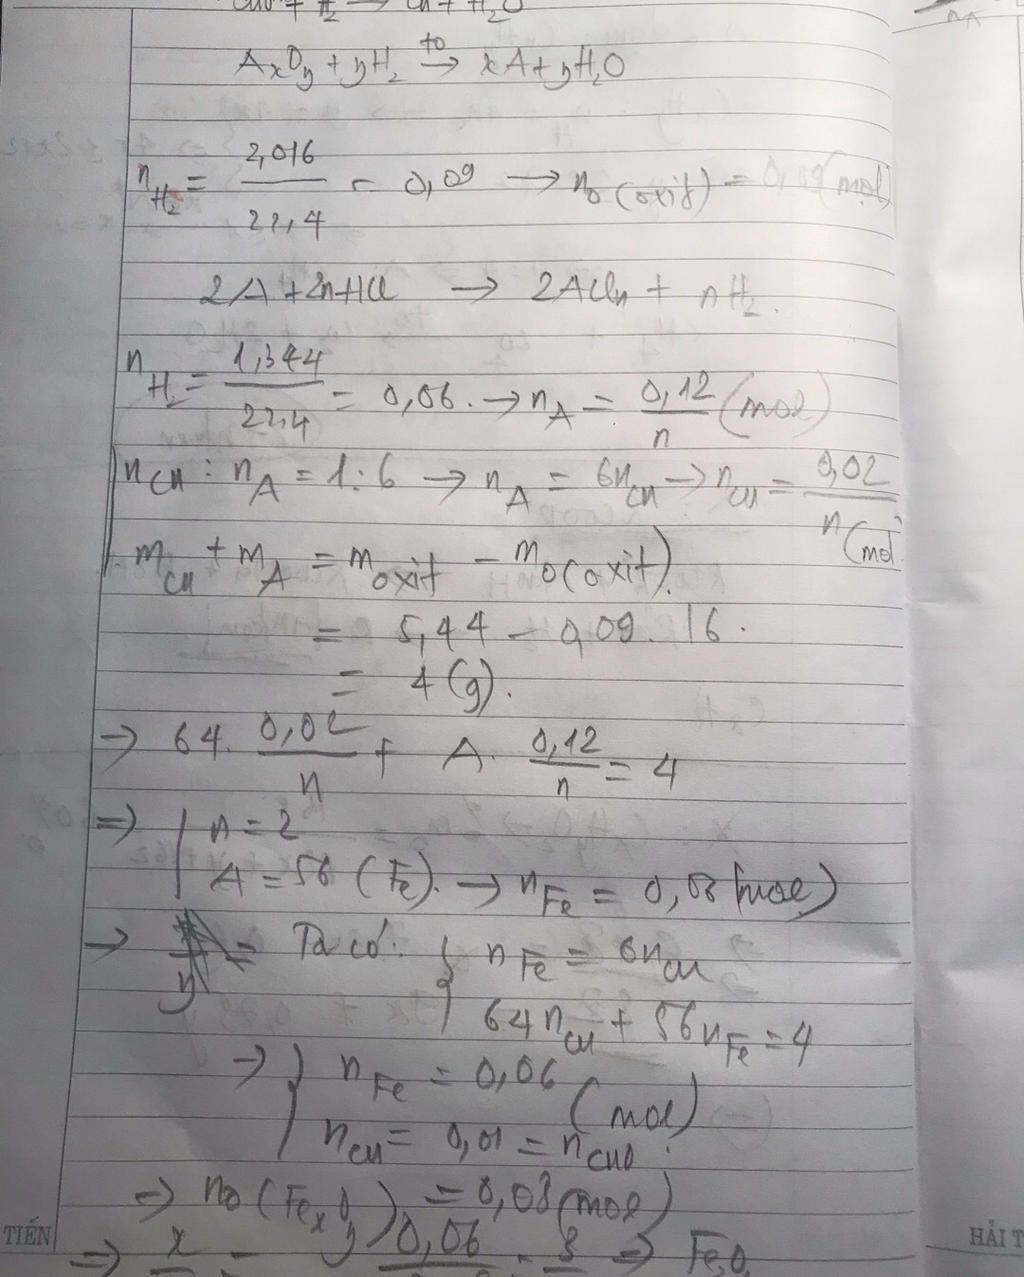 CuO + H₂ → Cu + H₂O
AₓOᵧ + yH₂ →(t°) xA + yH₂O
n_H₂ = 2,016/22,4 = 0,09 → n_O (oxit) = 0,09 (mol)
2A + 2nHCl → 2ACln + nH₂.
n_H₂ = 1,344/22,4 = 0,06. → n_A = 0,12/n (mol)
n_Cu : n_A = 1:6 → n_A = 6n_Cu → n_Cu = 0,02/n (mol)
m_Cu + m_A = m_oxit - m_O (oxit).
= 5,44 - 0,09.16.
= 4 (g).
→ 64. 0,02/n + A. 0,12/n = 4
⇒ n = 2
A = 56 (Fe). → n_Fe = 0,06 (mol)
→ Ta có: { n_Fe = 6n_Cu
64n_Cu + 56n_Fe = 4
→ { n_Fe = 0,06
(mol)
n_Cu = 0,01 = n_CuO.
⇒ n_O (FeₓOᵧ) = 0,08 (mol)
⇒ x = 0,06 = 3 ⇒ Fe O
TIẾN
HẢI T